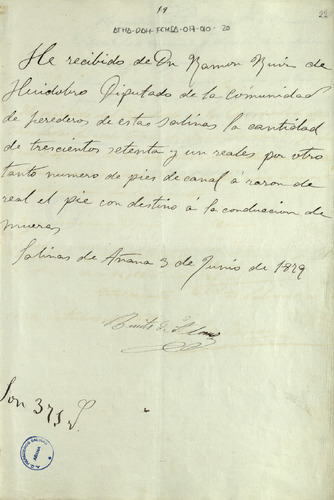 19
22
ATHA-DAH-FCMSA-017-010-20
He recibido de Dn Ramon Ruiz de
Huidobro Diputado de la comunidad
de herederos de estas salinas la cantidad
de trescientos setenta y un reales por otro
tanto numero de pies de canal á razon de
real el pie con destino á la conduccion de
mueras
Salinas de Añana 3 de Junio de 1879
Benito
Son 371